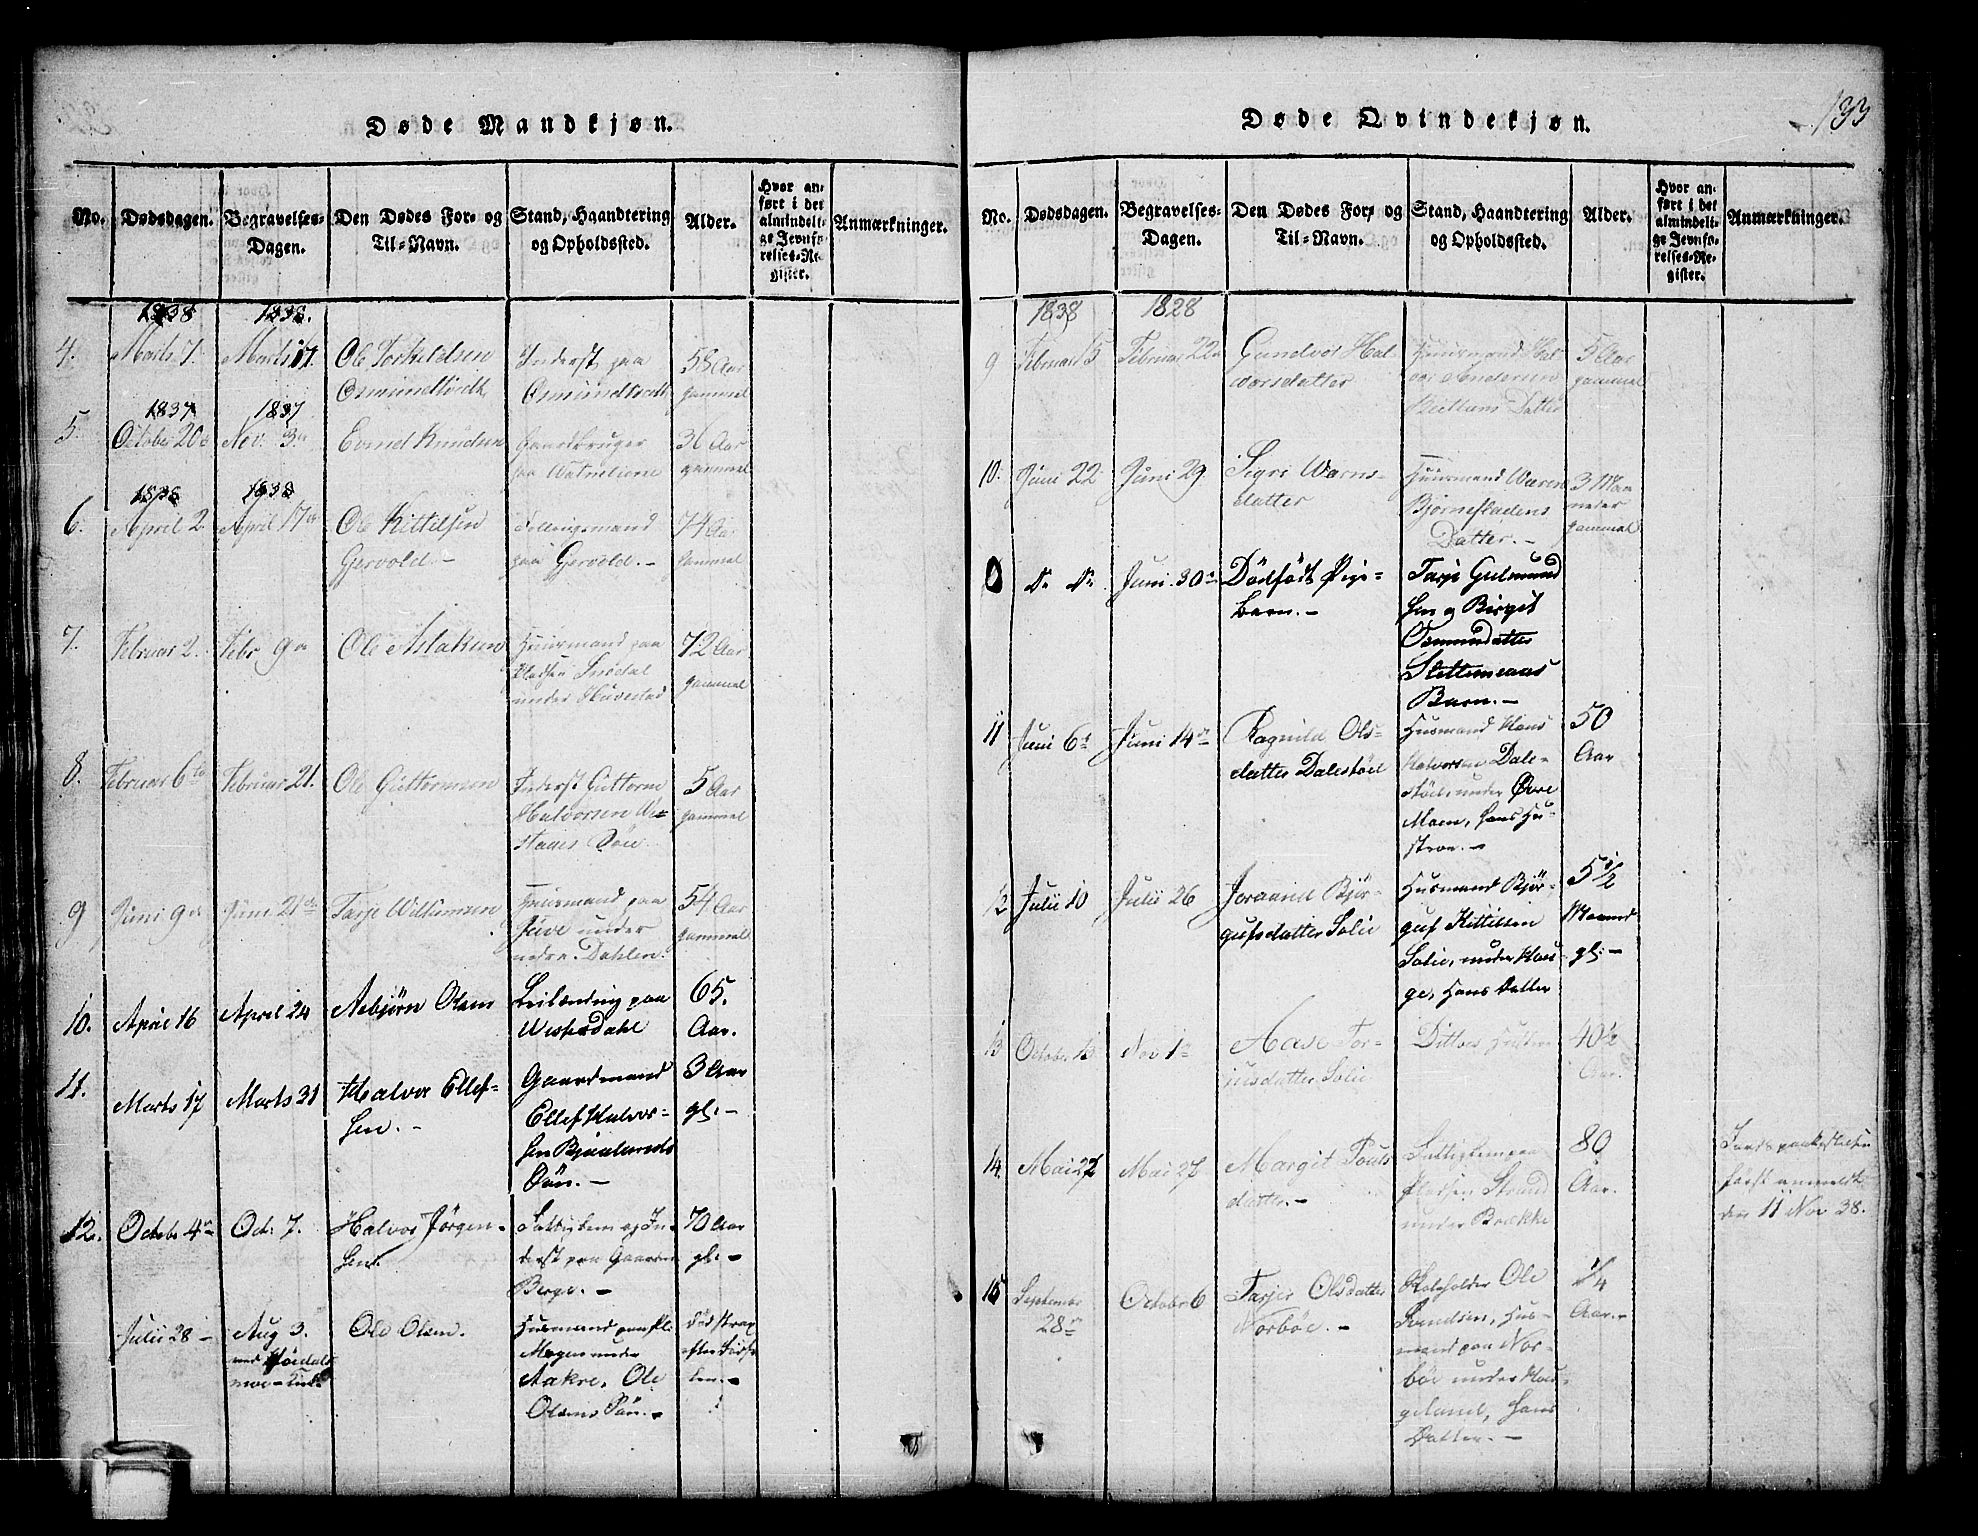 Døde Mandkjøn.
No.
Dødsdagen.
Begravelses-
Dagen.
Den Dødes For- og
Til-Navn.
Stand, Haandtering
og Opholdssted.
Alder.
Hvor an-
ført i det
almindeli-
ge Jevnfø-
relses-Re-
gister.
Anmærkninger.
1838
1838.
4.
Marts 7.
Marts 17.
Ole Torkildsen
Osmundtvedt
Inderst paa
Osmundtvedt
58 Aar
gammel
1837
1837
5.
October 20de
Nov. 3die
Evind Knudsen
Gaardbruger
paa
36 Aar
gammel
1838
1838
6.
April 2
April 17de
Ole Kittilsen
Gjervold.-
Follougsmand
paa Gjervold.-
74 Aar
gammel
7.
Februar 2.
Febr 9de
Ole Aslaksen
Huusmand paa
Pladsen
under Huvestad
72 Aar
gammel
8.
Februar 6te
Februar 21.
Ole Guttormsen
Inderst Guttorm
Halvorsen We-
stades Søn.
5 Aar
gammel
9
Juni 9de
Juni 21de
Tarje Willumsen
Huusmand paa
Juve under
nedre Dahlen.
54 Aar
gammel
10.
April 16
April 24
Aebjørn Olsen
Leilænding paa
Wistesdahl
65.
Aar.
11.
Marts 17
Marts 31
Halvor Ellef-
sen.-
Gaardmand
Ellef Halvor-
sen Bjaalands
Søn.-
3 Aar
gl.-
12.
Octobr 4de
Oct. 7.
Halvor Jørgen-
sen.
Fattiglem og In-
derst paa Gaarden
Berge.-
70 Aar
gl.-
Julii 28-
Aug 3.
ved
Ole Olsen.
Husmand paa Pl.
Mogen under
Aakre, Ole
Olsens Søn.-
død strax
efter Fødse-
len.-
133
Døde Qvindekjøn.
No.
Dødsdagen.
Begravelses-
Dagen.
Den Dødes For- og
Til-Navn.
Stand, Haandtering
og Opholdssted.
Alder.
Hvor an-
ført i det
almindeli-
ge Jevnfø-
relses-Re-
gister.
Anmærkninger.
1838
1828
9
Februar 15
Februar 22
Gundvor Hal-
vorsdatter
Huusmand Hal-
vor Andersen
Datter
5 Aar
gammel
10.
Juni 22
Juni 29.
Sigri Warns-
datter
Huusmand Waren
Bjørnestadens
Datter.-
3 Maa
neder
gammel
0
do do
Juni 30te
Dödfödt Pige-
barn.-
Tarje Gulmund
sen og Birgit
Osmundatter
Slettemeaas
Barn.-
11
Juni 6te
Juni 14de
Ragnild Ols-
datter Dalestöel
Husmand Hans
Halvorsen Dale-
stöel, under Øvre
Moen, hans Hu-
stroe.-
50
Aar
12
Julii 10
Julii 26
Joraand Bjør-
gufsdatter Solie
Husmand Bjør-
guf Kittilsen
Solie, under Hau-
ge, Hans Datter
5 1/2
Maaned
gl.-
13
Octobr 13
Nov 1ste
Aase Tor-
jusdatter Solie
Dittoes Hustroe
40 1/2
Aar.
14.
Mai 27
Mai 27
Margit Pouls
datter.-
Fattiglem paa
Pladsen Strand
under Brække
80
Aar.
Jordspaakastelsen
først anmeldt
den 11 Nov 38.
15
September
28de
Octobr 6
Tarjer Olsdatter
Norböe.-
Skoleholder Ole
Svendsen, Hus-
mand paa Nor-
böe under Hau-
geland, hans
Datter.-
1/4
Aar.-